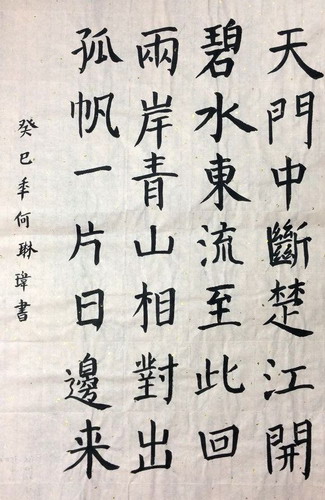 天門中斷楚江開
碧水東流至此回
兩岸青山相對出
孤帆一片日邊来
癸巳年何琳瑋書